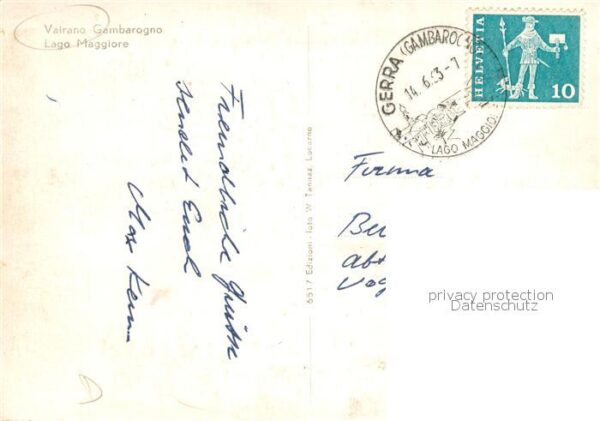 Vairano Gambarogno
Lago Maggiore
Freundliche Grüsse
sendet Euch
Max
6517 Edizioni - foto W. Tannaz, Locarno
GERRA (GAMBAROGNO)
14.6.63-7
LAGO MAGGIORE
HELVETIA
10
Firma
privacy protection
Datenschutz